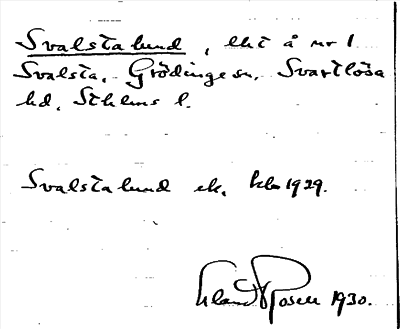 Svalstalund, lht å nr 1
Svalsta, Grödinge sn, Svartlösa
hd, Sthlms l.
Svalstalund ek. kbr 1929.
Rosell 1930.